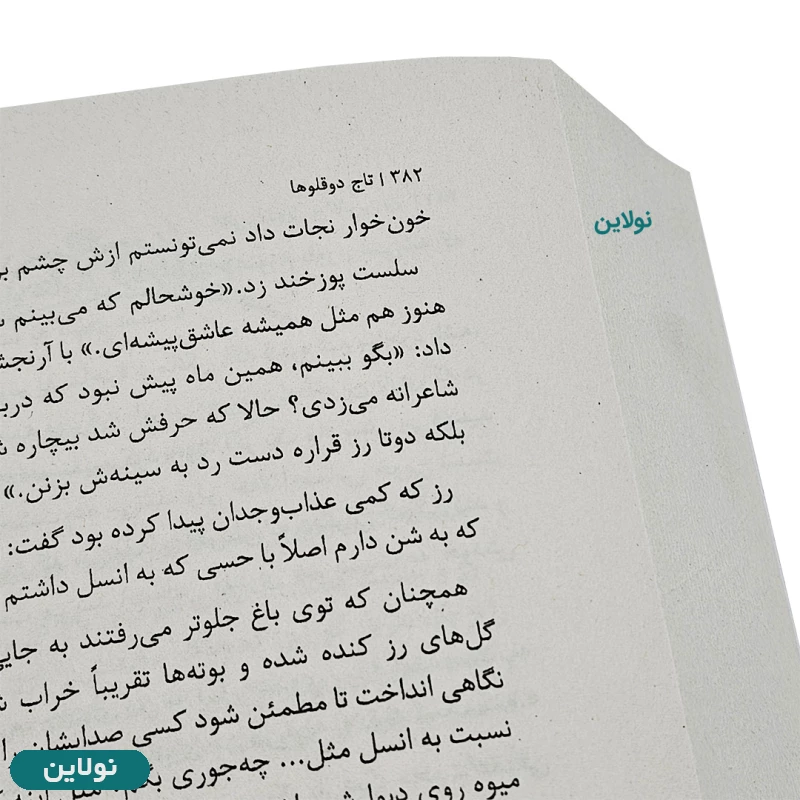 ۳۸۲ | تاج دوقلوها
خون‌خوار نجات داد نمی‌تونستم ازش چشم
سلست پوزخند زد. «خوشحالم که می‌بینم
هنوز هم مثل همیشه عاشق‌پیشه‌ای.» با
داد: «بگو ببینم، همین ماه پیش نبود که
شاعرانه می‌زدی؟ حالا که حرفش شد بیچاره
بلکه دوتا رز قراره دست رد به سینه‌ش بزنن.»
رز که کمی عذاب‌وجدان پیدا کرده بود گفت:
که به شن دارم اصلاً با حسی که به انسل داشتم
همچنان که توی باغ جلوتر می‌رفتند به
گل‌های رز کنده شده و بوته‌ها تقریباً خراب
نگاهی انداخت تا مطمئن شود کسی صدایشان
نسبت به انسل مثل... چه‌جوری
میوه روی
نولاین
نولاین